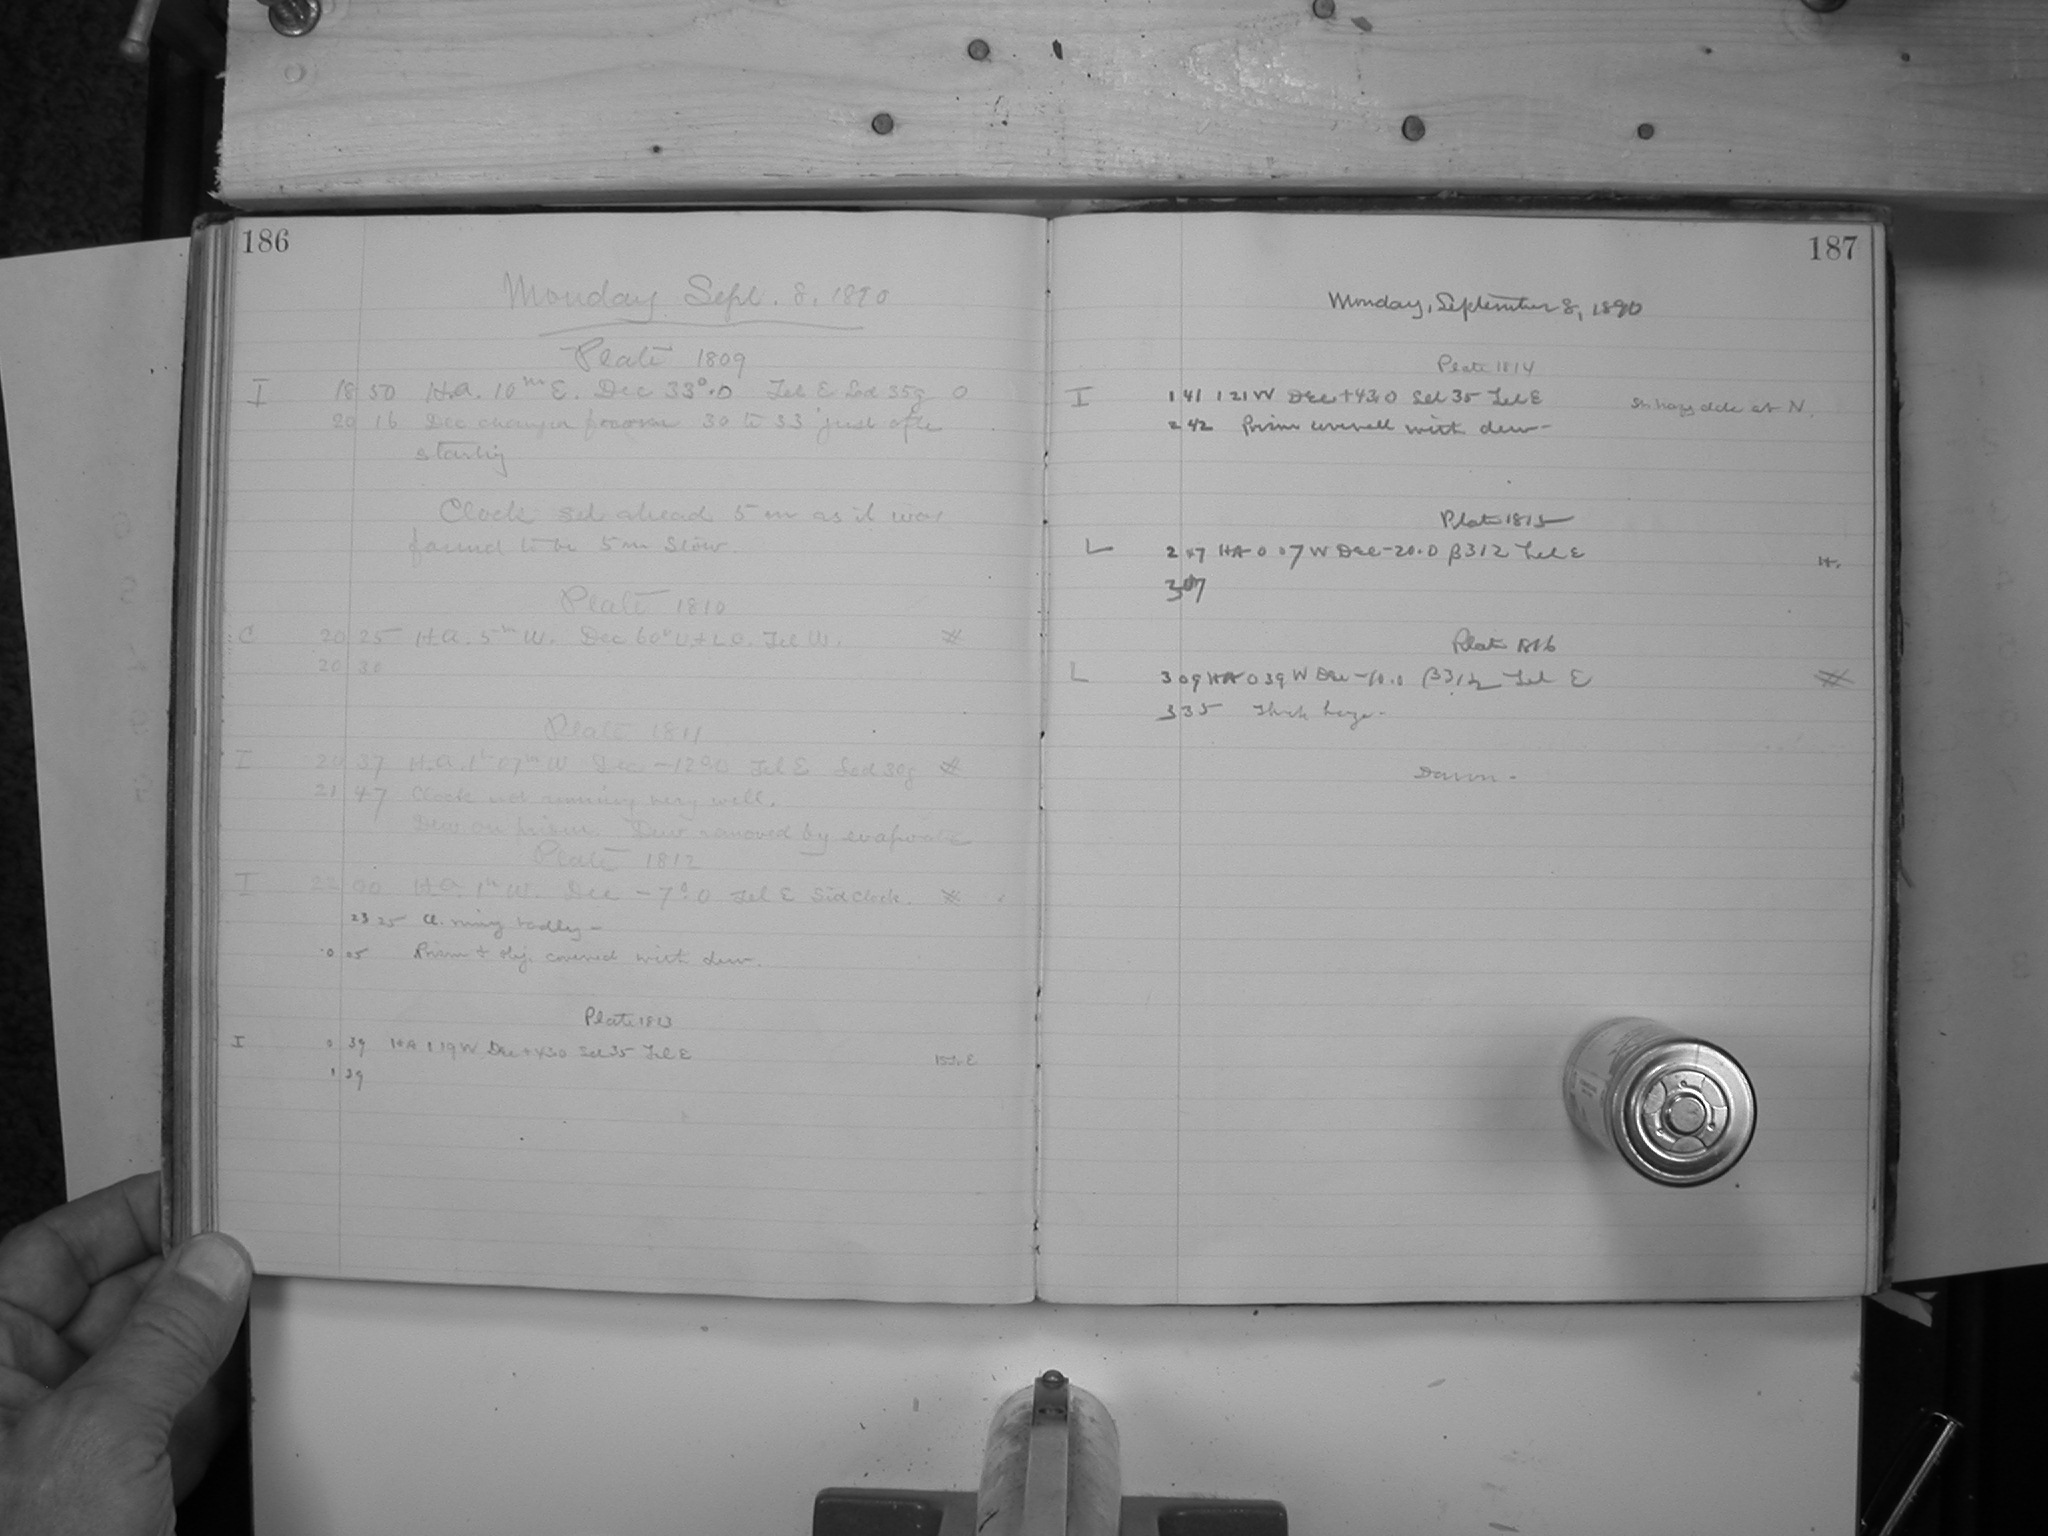 186
Monday Sept. 8, 1890
Plate 1809
I 18 50 H.A. 10m E. Dec 33°.0 Tel. E Sed 35g 0
20 16 Dec changed from 30 to 33 just after
starting
Clock set ahead 5 m as it was
found to be 5m slow.
Plate 1810
C 20 25 H.A. 5m W. Dec 60° U. + L C. Tel W.
20 30
Plate 1811
I 20 37 H.A. 1h 07m W Dec -12°.0 Tel E Sed 30g
21 47 Clock not running very well.
Dew on prism. Dew removed by evaporatio
Plate 1812
I 22 00 H.A. 1h W. Dec -7°.0 Tel E Sid Clock.
23 25 Cl. badly -
0 05 Prism + obj. covered with dew.
Plate 1813
I 0 39 HA 1 19 W Dec +43.0 Sed 35 Tel E
1 39
187
Monday, September 8, 1890
Plate 1814
I 1 41 1 21 W Dec +43.0 Sed 35 Tel E at N.
2 42 Prism covered with dew -
Plate 1815
L 2 47 HA 0 07 W Dec -20.0 β312 Tel E H.
3 07
Plate 1816
L 3 09 HA 0 39 W Dec -10.0 β312 Tel E
3 35 Thick haze -
Dawn -